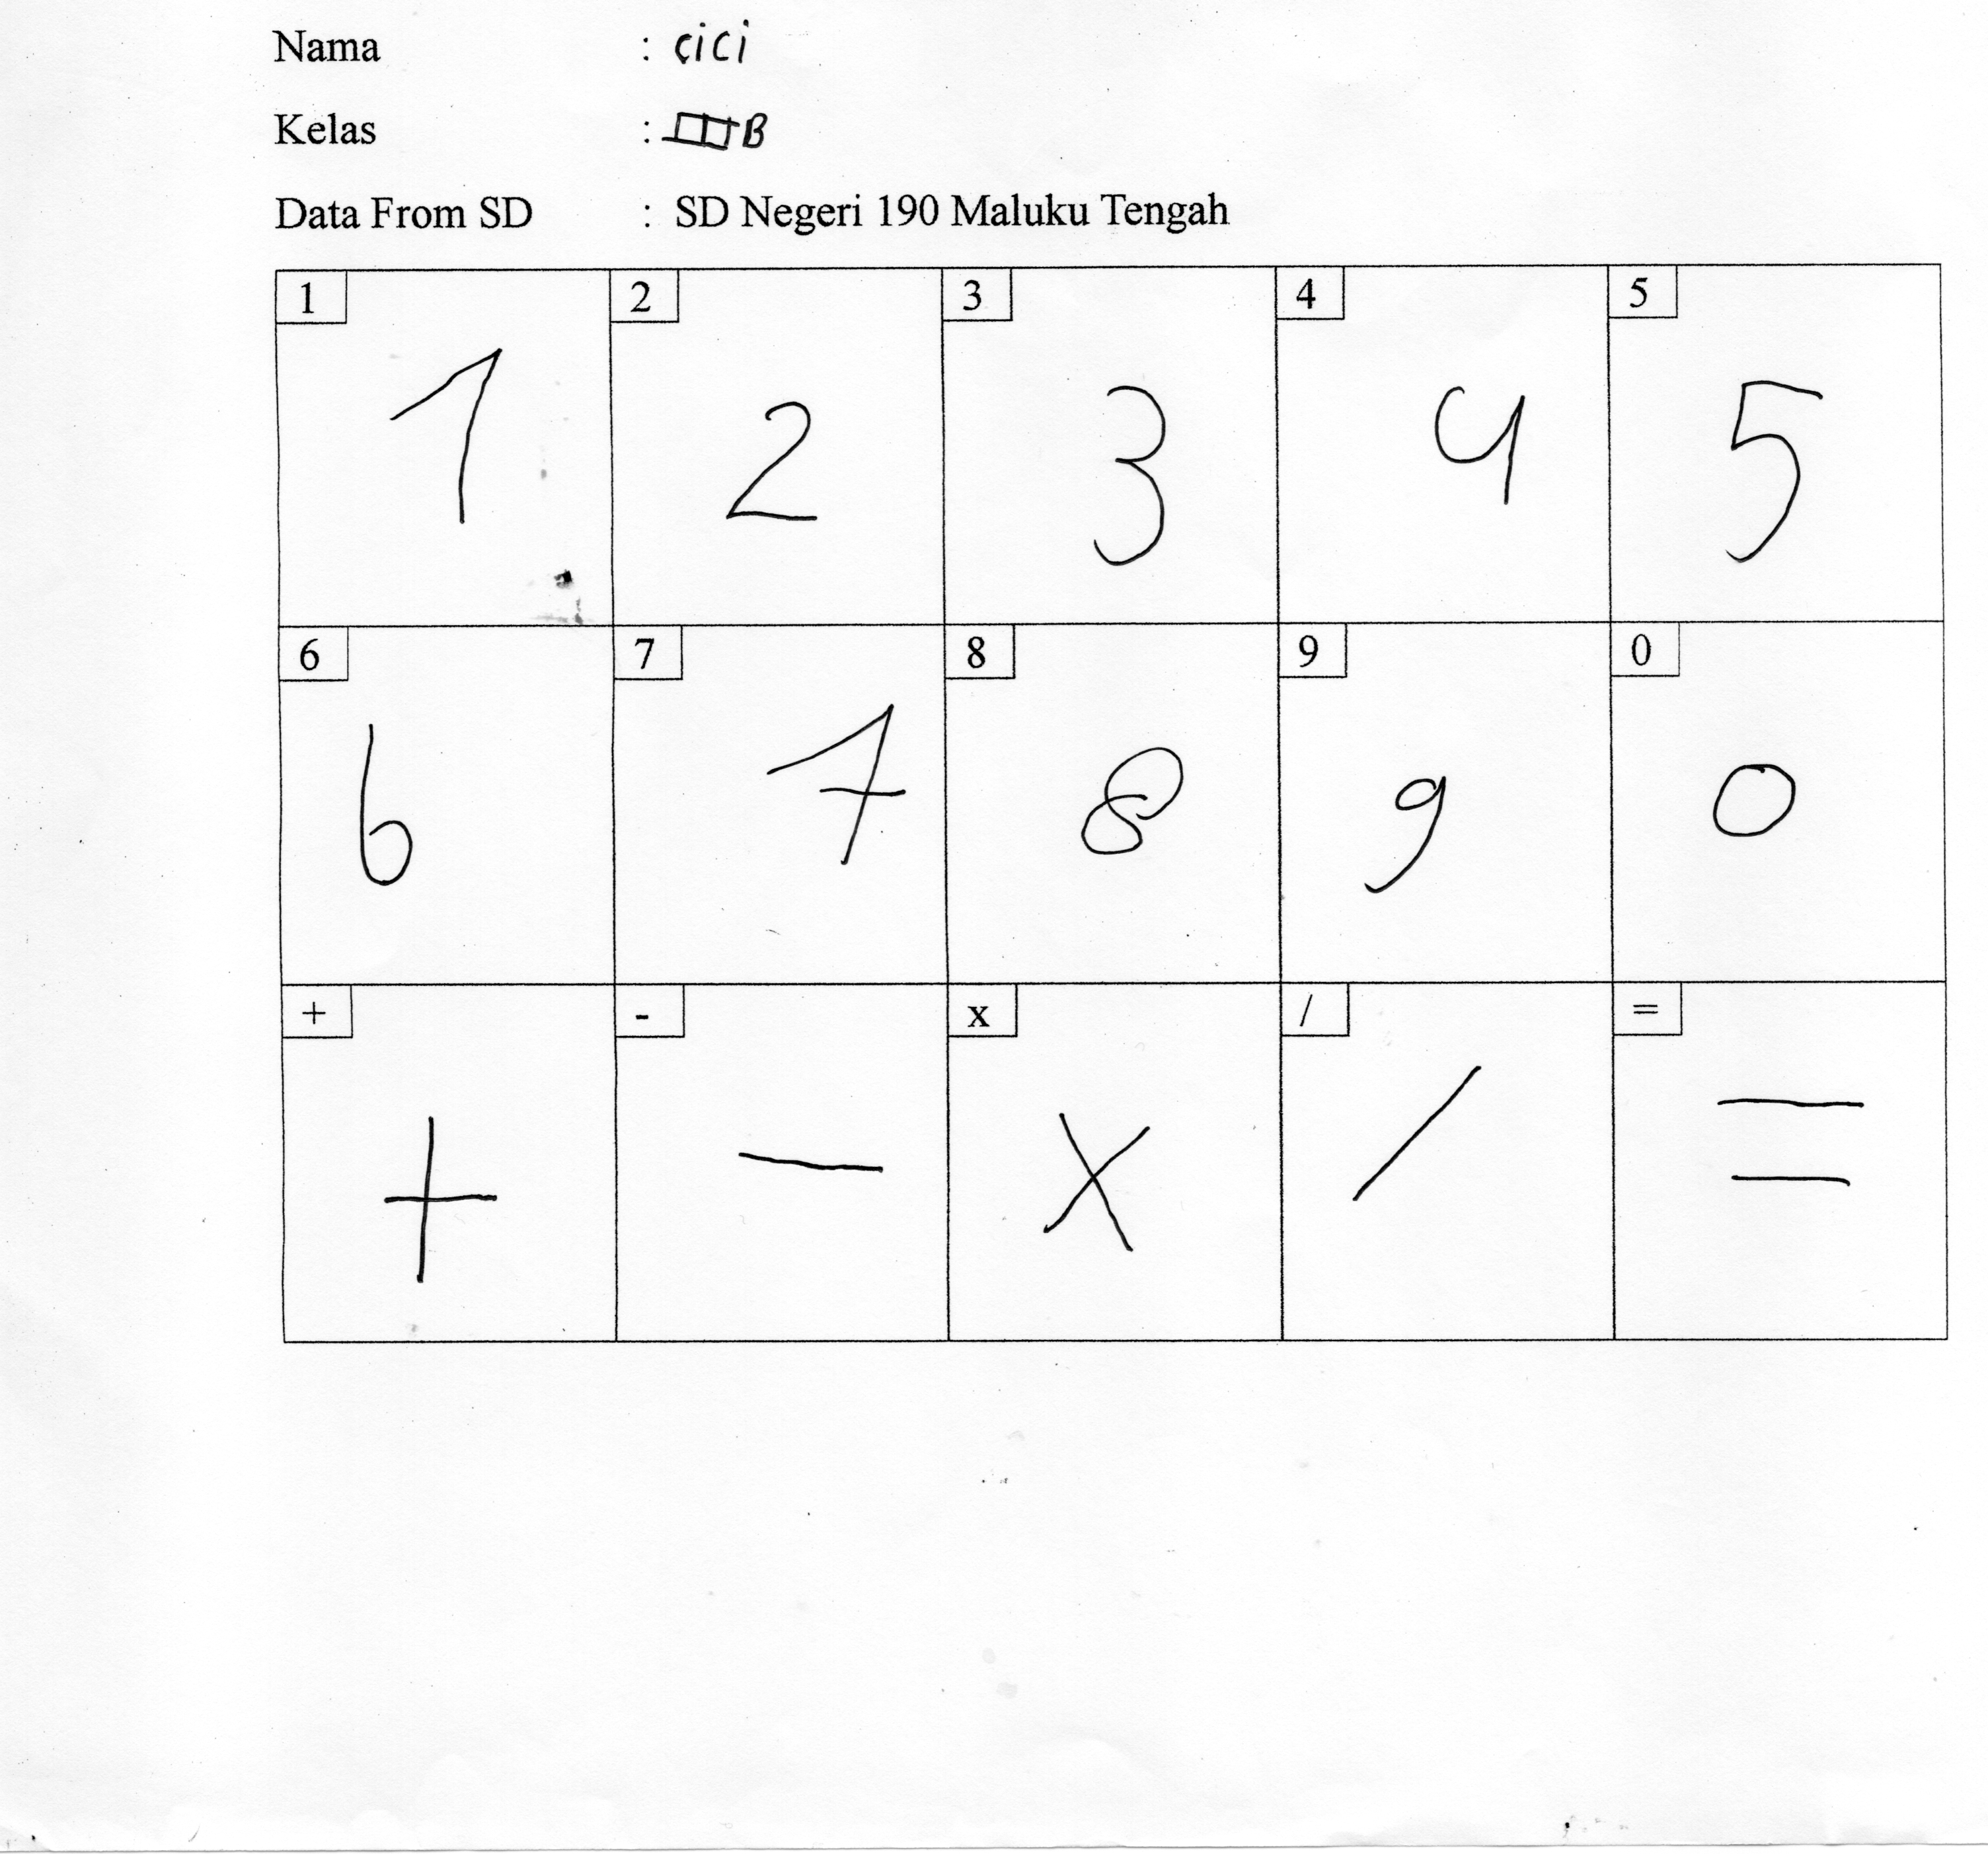 Nama : cici
Kelas : III B
Data From SD : SD Negeri 190 Maluku Tengah
1 2 3 4 5
1 2 3 4 5
6 7 8 9 0
6 7 8 9 0
+ - x / =
+ - x / =